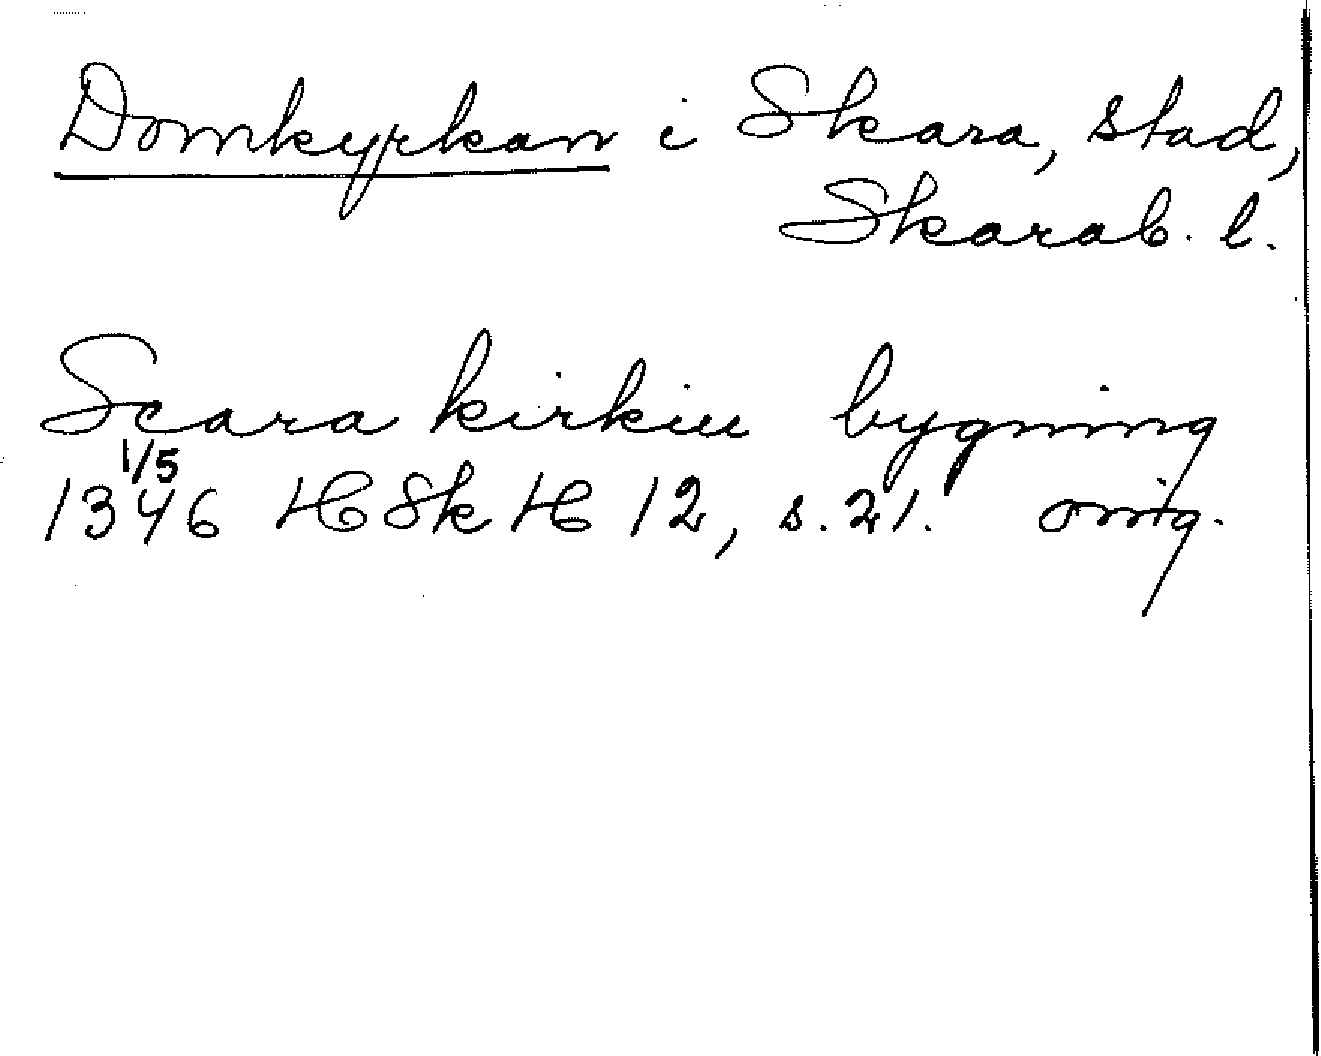 Domkyrkan i Skara, stad,
Skarab. l.
Scara kirkiu bygning
1/5
1346 HSkH 12, s. 21. orig.